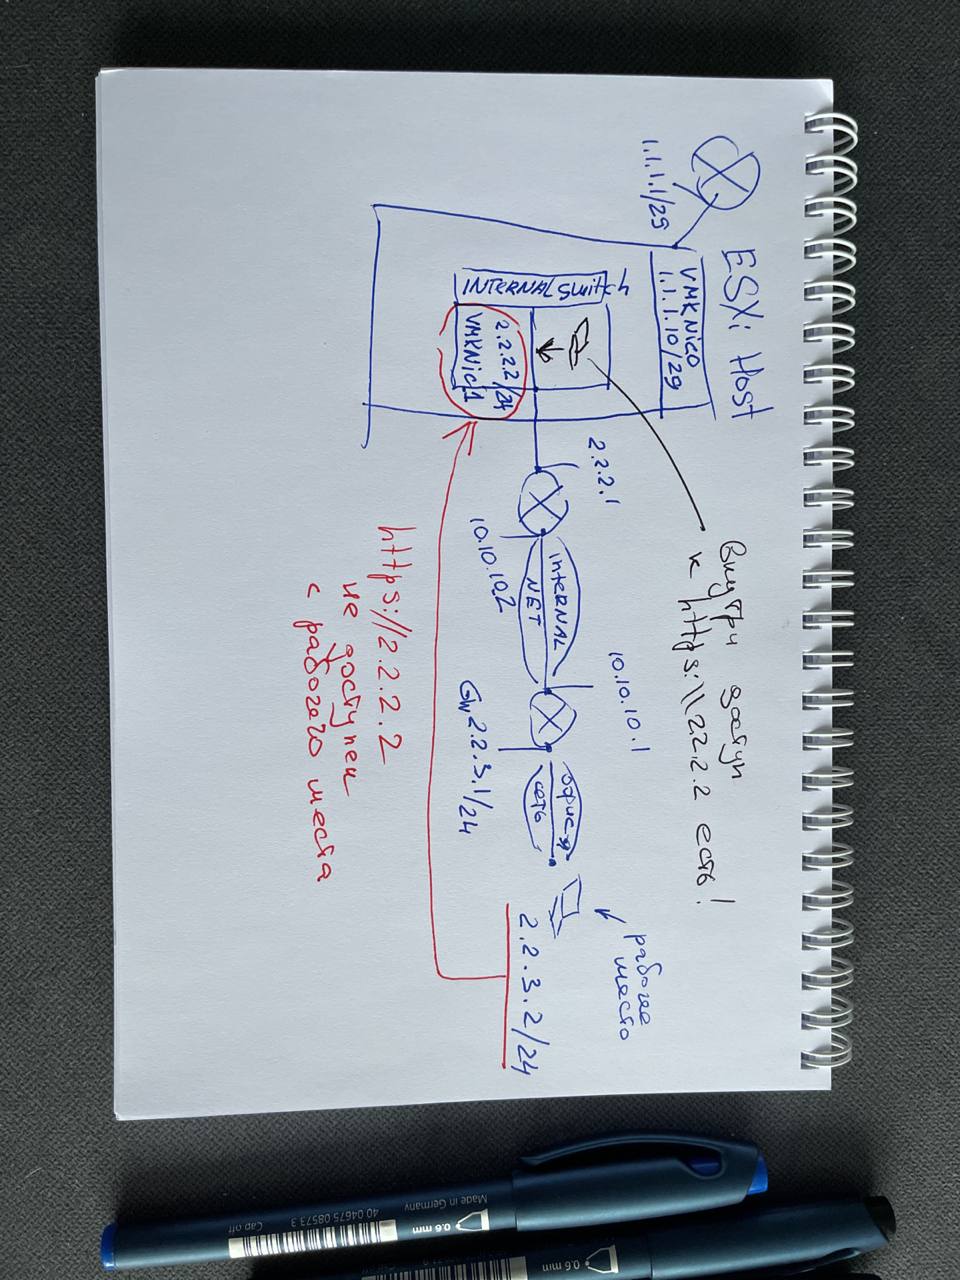 ESXi Host
1.1.1.1/29
VMKNIC0
1.1.1.10/29
INTERNAL Switch
2.2.2.2/24
VMKNic1
2.2.2.1
10.10.10.2
INTERNAL
NET
10.10.10.1
GW 2.2.3.1/24
офисн
сеть
рабочее
место
2.2.3.2/24
Внутри доступ
к https:\\2.2.2.2 есть!
https://2.2.2.2
не доступен
с рабочего места
Made in Germany
40 04675 08573 3
Cap off
0.6 mm
0.6 mm